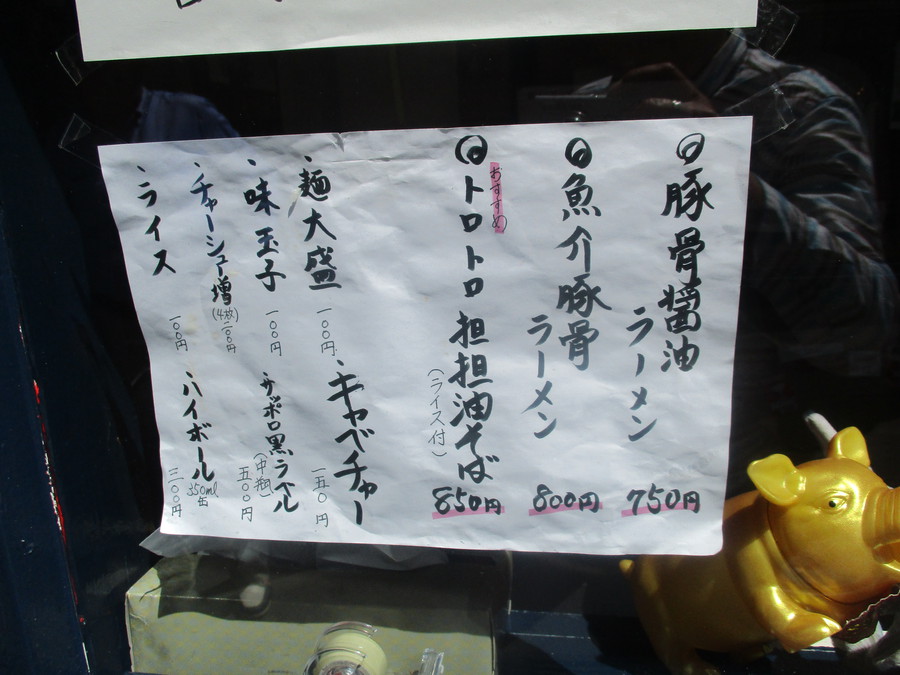 ◎豚骨醤油
ラーメン
750円
◎魚介豚骨
ラーメン
800円
おすすめ
◎トロトロ担担油そば
(ライス付)
850円
・麺大盛
一〇〇円
・キャベチャー
一五〇円
・味玉子
一〇〇円
・サッポロ黒ラベル
(中瓶)
五〇〇円
・チャーシュー増
(4枚)
二〇〇円
・ハイボール
350ml缶
・ライス
一〇〇円